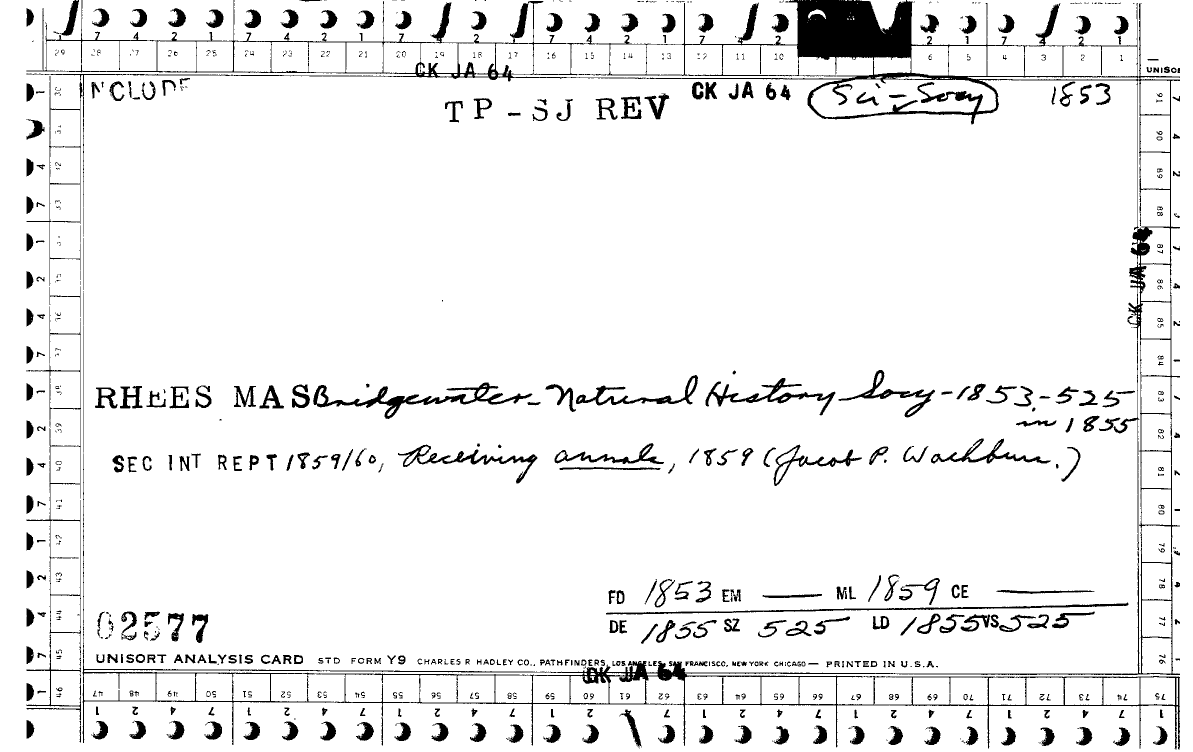 7 4 2 1 7 4 2 1 7 4 2 1 7 4 2 1 7 4 2 1 7 2 1 7 4 2 1
29 28 27 26 25 24 23 22 21 20 19 18 17 16 15 14 13 12 11 10 6 5 4 3 2 1
CK JA 64
UNISOR
NCLUDE
TP-SJ REV CK JA 64 Sci-Socy 1853
CK JA 64
RHEES MAS Bridgewater - Natural History Socy - 1853 - 525
in 1855
SEC INT REPT 1859/60, Receiving annals, 1859 (Jacob P. Washburn.)
FD 1853 EM — ML 1859 CE —
DE 1855 SZ 525 LD 1855 VS 525
02577
UNISORT ANALYSIS CARD STD FORM Y9 CHARLES R HADLEY CO., PATHFINDERS, LOS ANGELES, SAN FRANCISCO, NEW YORK CHICAGO — PRINTED IN U.S.A.
CK JA 64
47 48 49 50 51 52 53 54 55 56 57 58 59 60 61 62 63 64 65 66 67 68 69 70 71 72 73 74 75
1 2 4 7 1 2 4 7 1 2 4 7 1 2 4 7 1 2 4 7 1 2 4 7 1 2 4 7 1